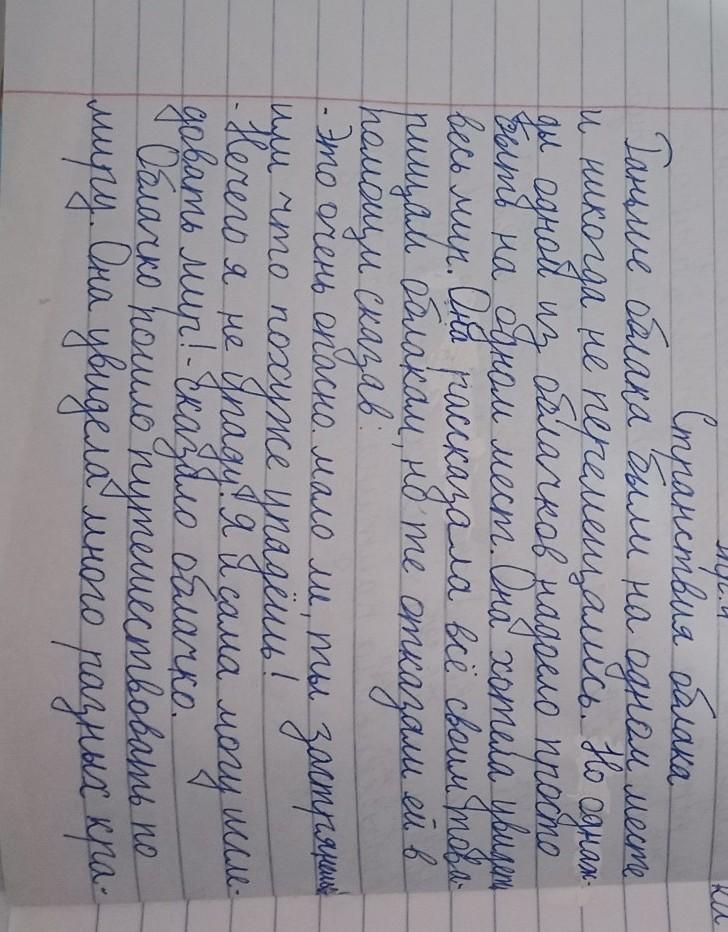 Странствия облака
Раньше облака были на одном месте
и никогда не перемещались. Но однаж-
ды одной из облачков надоело просто
быть на одном мест. Она хотела увидеть
весь мир. Она рассказала всё своим това-
рищам облакам, но те отказали ей в
помощи сказав:
- Это очень опасно мало ли, ты застрянешь
или что похуже упадёшь!
- Нечего я не упаду! Я и сама могу иссле-
довать мир! - сказало облачко.
Облачко пошло путешествовать по
миру. Она увидела много разных кра-